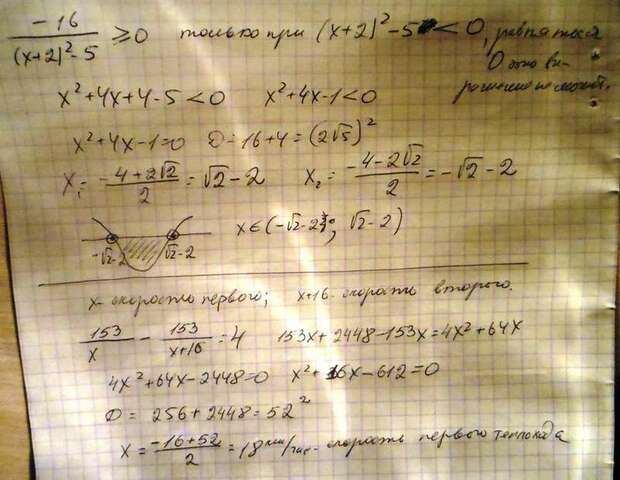 -16/((x+2)²-5) ≥ 0 только при (x+2)²-5 < 0, равнятся
0 это вы-
ражение не может.
x²+4x+4-5<0 x²+4x-1<0
x²+4x-1=0 D=16+4=(2√5)²
x₁=(-4+2√2)/2=√2-2 x₂=(-4-2√2)/2=-√2-2
-√2-2 √2-2 x∈(-√2-2; √2-2)
x- скорость первого; x+16- скорость второго.
153/x - 153/(x+16)=4 153x+2448-153x=4x²+64x
4x²+64x-2448=0 x²+16x-612=0
D=256+2448=52²
x=(-16+52)/2=18 км/час- скорость первого теплохода